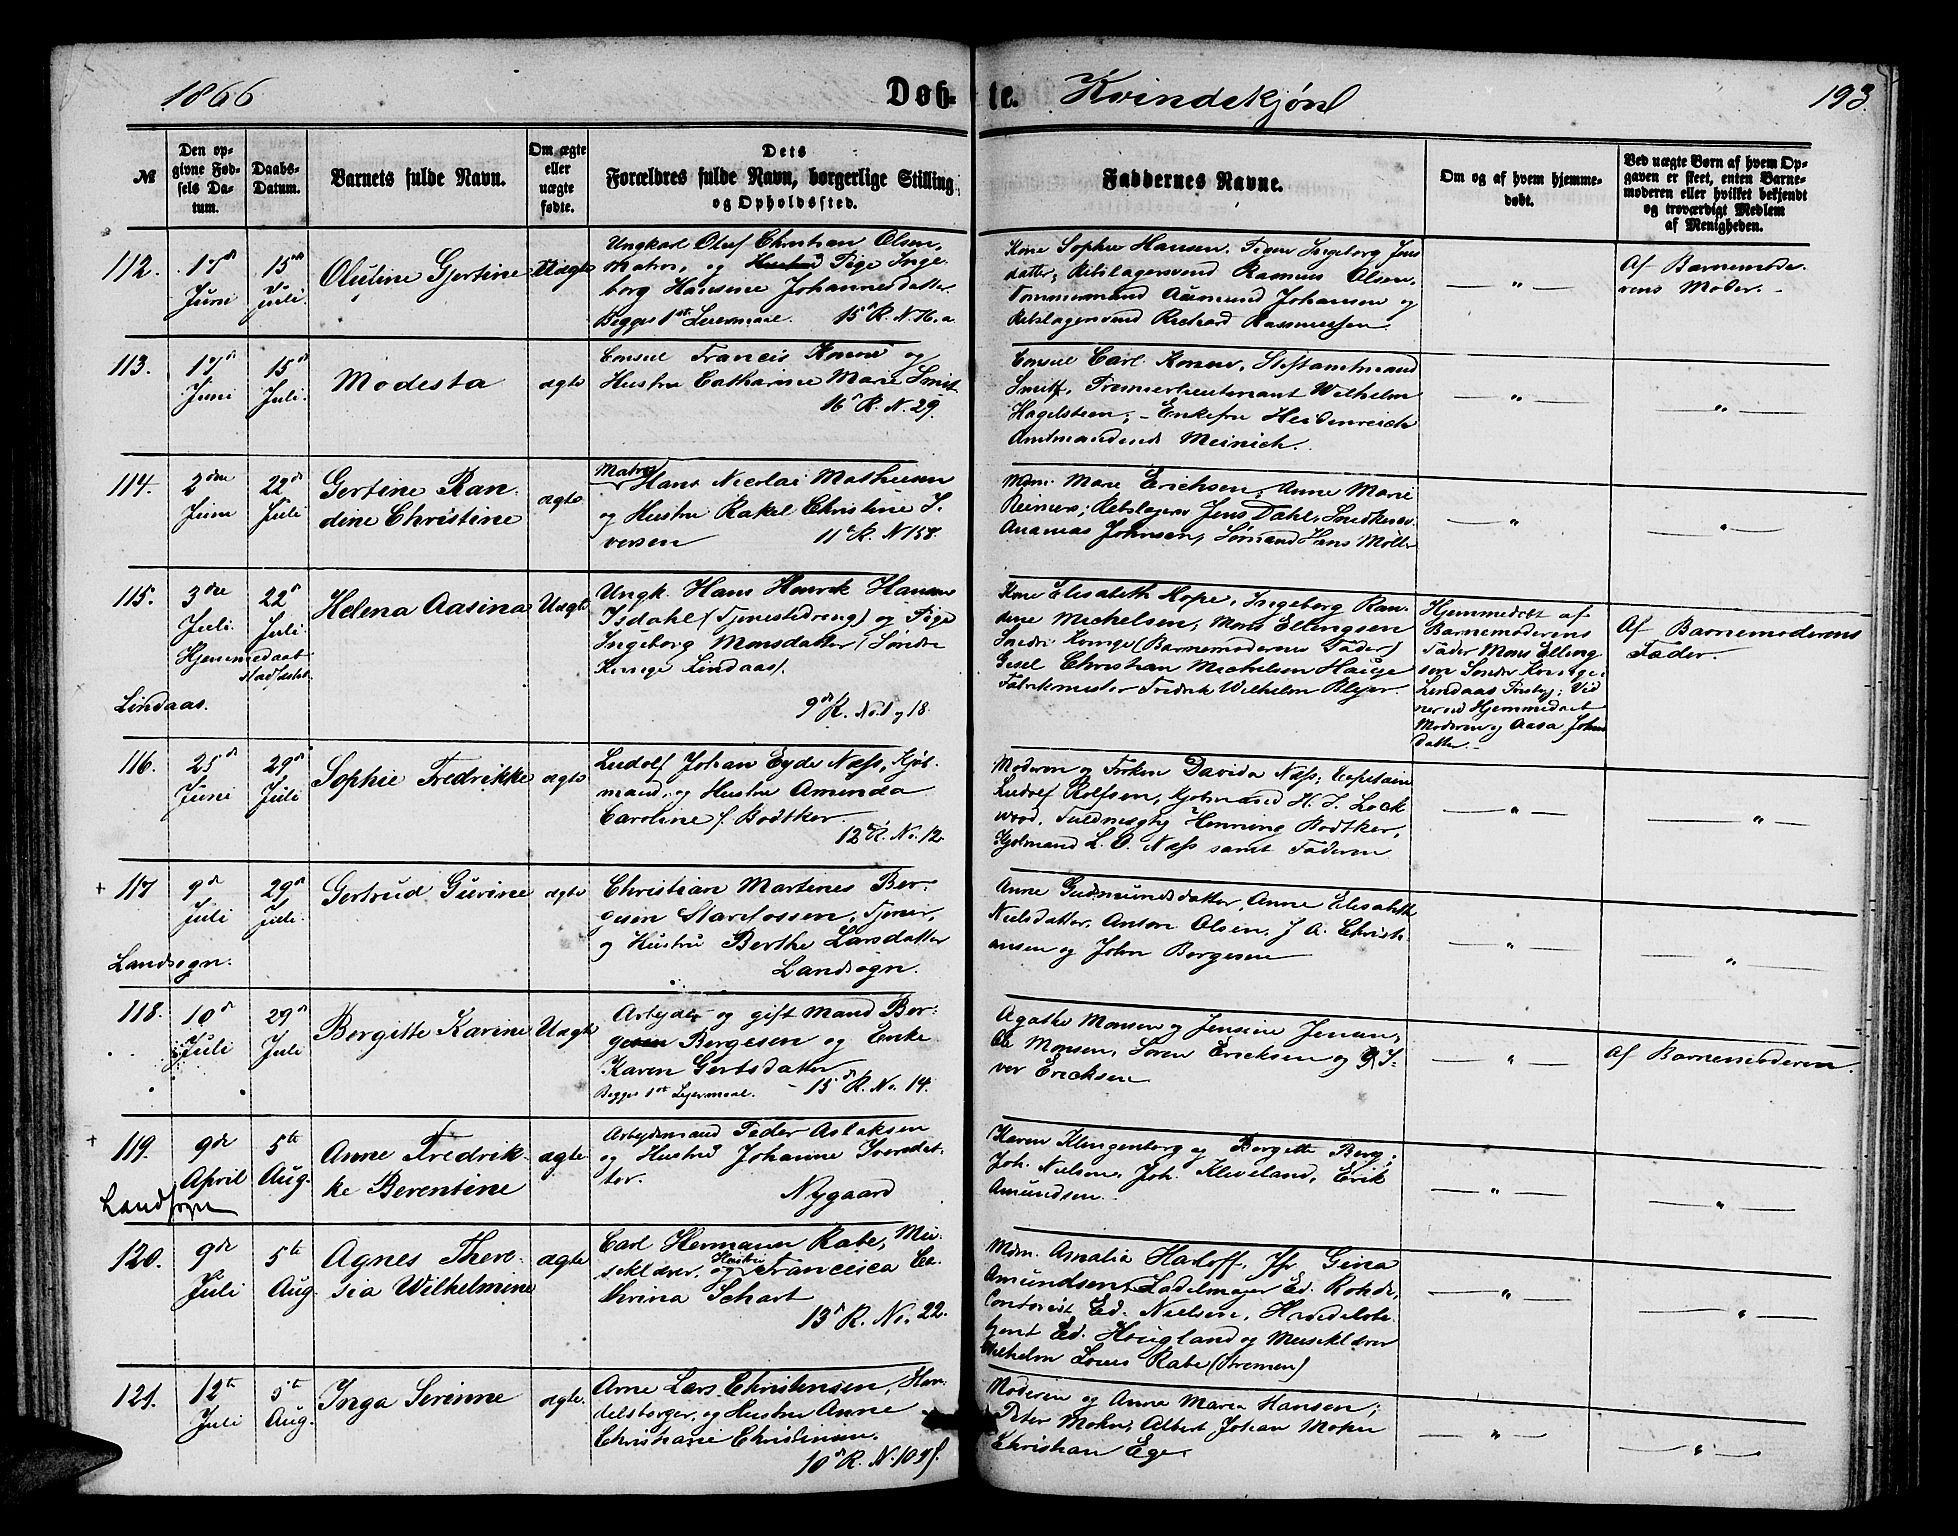 1866
Døb-
te.
Kvindekjøn
193.
№
Den op-
givne Fød-
sels Da-
tum.
Daabs-
Datum.
Barnets fulde Navn.
Om ægte
eller
uægte
fødte.
Dets
Forældres fulde Navn, borgerlige Stilling
og Opholdssted.
Faddernes Navne.
Om og af hvem hjemme-
døbt.
Ved uægte Børn af hvem Op-
gaven er skeet, enten Barne-
moderen eller hvilket bekjendt
og troværdigt Medlem
af Menigheden.
112.
17de
Juni
15de
Juli.
Oluline Gjertine
Uægte
Ungkarl Oluf Christian Olsen,
Matros, og Hustrue Pige Inge-
borg Hansine Johannesdatter
Begges 1ste Leiermaal. 15de R. N. 16. a
Kone Sophie Hansen, Pigen Ingeborg Jens
datter; Rebslagersvend Rasmus Olsen,
Tømmermand Aamund Johansen og
Rebslagersvend Richard Rasmussen.
— " —
Af Barnemode-
rens Moder.
113.
17de
Juni
15de
Juli.
Modesta
ægte
Consul Francis Konow og
Hustru Catharine Marie Smit
16de R. N. 29.
Consul Carl Konow, Stiftamtmand
Smitt, Premierlieutenant Wilhelm
Hagelsteen; Enkefru Heidenreich
Amtmandinde Meinich.
— " —
— " —
114.
2den
Juni
22de
Juli
Gertine Ran-
dine Christine
ægte
Matros
Hans Nicolai Mathiesen
og Hustru Rakel Christine I-
versen 11te R. N. 158.
Mdm. Marie Erichsen, Anne Marie
Reiners; Rebslager Jens Dahl, Snedkersv.
Ananias Johnsen, Sømand Hans Møller
— " —
— " —
115.
3die
Juli.
Hjemmedaab
stadfæstet
22de
Juli
Lindaas.
Helena Aasina
Uægte
Ungk. Hans Henrik Hansen
Isdahl (Tjenestedreng) og Pige
Ingeborg Monsdatter (Søndre
Kvinge Lindaas).
9de R. No. 1 og 18.
Kone Elisabeth Hope, Ingeborg Ran-
dine Michelsen; Mons Ellingsen
Søndre Kvinge (Barnemoderens Fader)
Gesel Christian Michelsen Hauge
Fabrikmester Fredrik Wilhelm Blyer.
Hjemmedøbt af
Barnemoderens
Fader Mons Elling
sen Søndre Kvinge,
Lindaas Præstgj; Vid
ner ved Hjemmedaab
Moderen og Aasa Johns
datter.
Af Barnemoderens
Fader.
116.
25de
Juni
29de
Juli
Sophie Fredrikke
ægte
Ludolf Johan Eyde Næss, Kjøb-
mand, og Hustru Amanda
Caroline f. Bødtker.
12te R. No. 12.
Moderen og Frøken Davida Næss; Capitain
Ludolf Rolfsen, Kjøbmand H. I. Lock
wood, Fuldmægtig Henning Bødtker,
Kjøbmand L. O. Næss samt Faderen
— " —
— " —
+ 117
9de
Juli
29de
Juli.
Landsogn.
Gertrud Gurine
ægte
Christian Martines Bør-
gesen Storefossen, Tjener,
og Hustru Berthe Larsdatter
Landsogn.
Anne Gudmundsdatter, Anne Elisabeth
Nielsdatter, Anton Olsen, J. A. Christi-
ansen og John Børgesen
— " —
— " —
118.
10de
Juli
29de
Juli
Bergitte Karine
Uægte
Arbeider og gift Mand Bør-
gesen Børgesen og Enke
Karen Gertsdatter
Begges 1ste Lejermaal. 15de R. No. 14.
Agathe Monsen og Jensine Jensen,
Ole Monsen, Søren Ericksen og I-
ver Ericksen
— " —
Af Barnemoderen.
+ 119.
9de
April
5te
Aug.
Landsogn
Anne Fredrik-
ke Berentine
ægte
Arbeidsmand Peder Aslaksen
og Hustru Johanne Iversdat-
ter.
Nygaard
Karen Klingenberg og Bergitte Berg;
Joh. Nielsen, Joh. Kleveland, Erik
Amundsen.
— " —
— " —
120.
9de
Juli
5te
Aug.
Agnes There-
sia Wilhelmine
ægte
Carl Hermann Rabe, Mu-
siklærer, og Hustru Francisca Ca-
thrina Schart
13de R. No. 22.
Mdm. Amalia Harloff, Jfr Gina
Amundsen, Sadelmager Ed. Rohde,
Contorist Ed. Nielsen, Handelsbe-
tjent Ed. Hougland og Musiklærer
Wilhelm Louis Rabe (Bremen)
— " —
— " —
121.
12te
Juli
5te
Aug.
Inga Serinne
ægte.
Arne Lars Christensen, Han-
delsborger, og Hustru Anne
Christiane Christensen.
10de R. N. 10
Moderen og Anna Maria Hansen;
Peter Mohn, Albert Johan Mohn
Christian Ege.
— " —
— " —